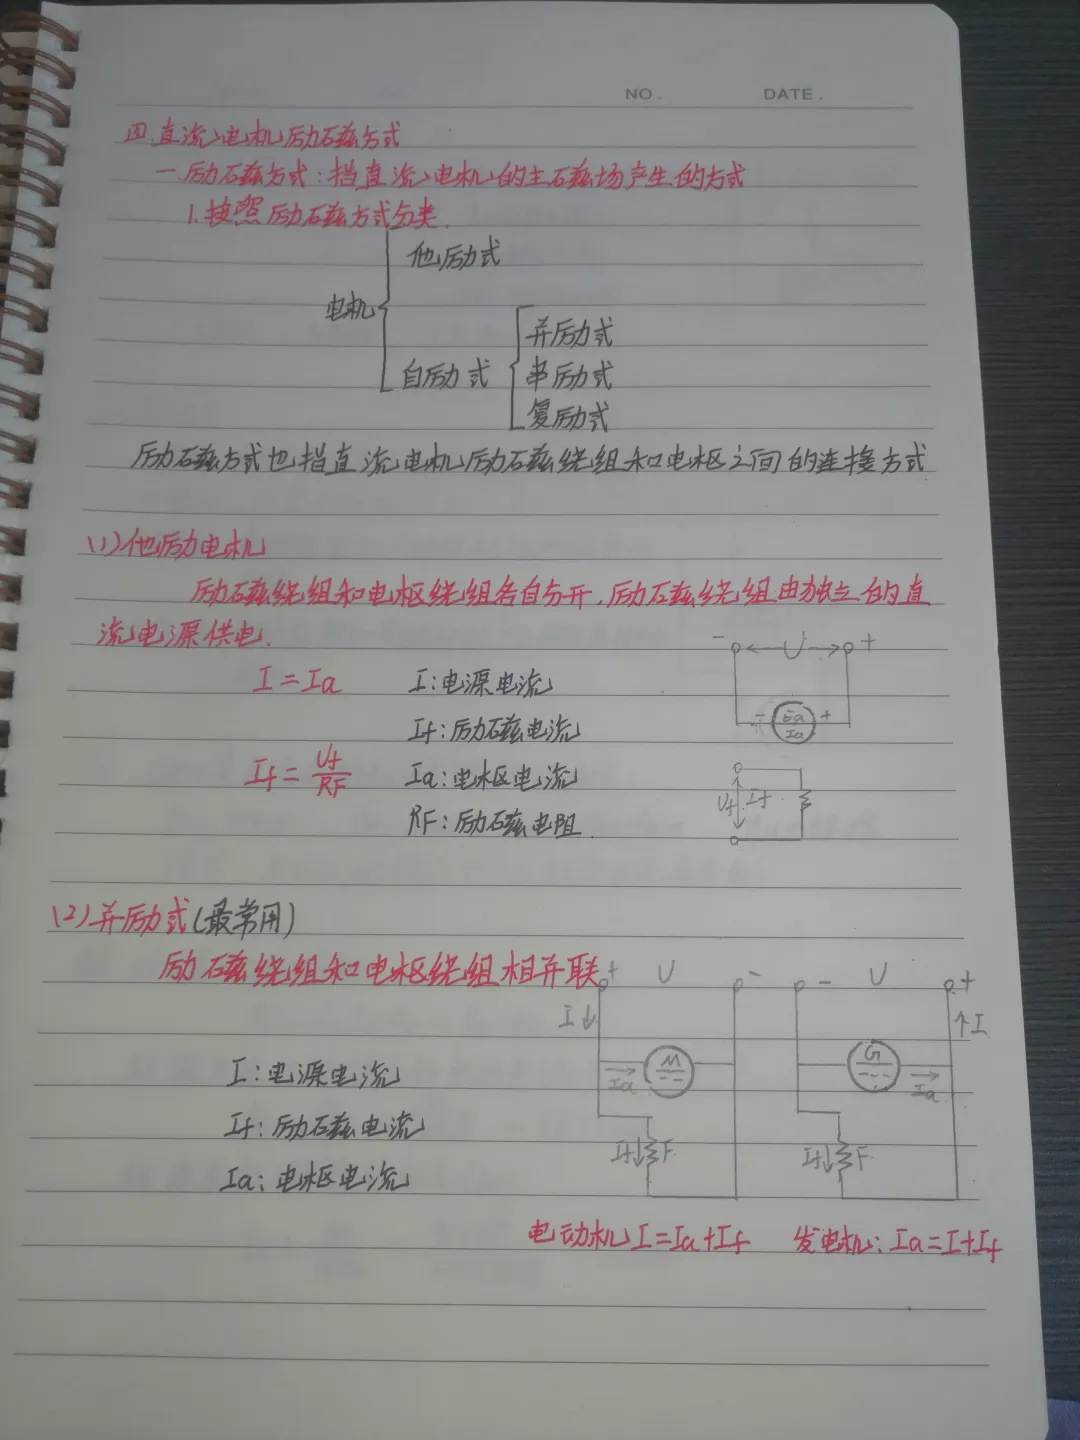 NO. DATE.
四.直流电机励磁方式
一.励磁方式:指直流电机的主磁场产生的方式
1.按照励磁方式分类.
他励式
电机
并励式
自励式 串励式
复励式
励磁方式也指直流电机励磁绕组和电枢之间的连接方式
(1)他励电机
励磁绕组和电枢绕组各自分开,励磁绕组由独立的直
流电源供电.
- U +
I=Ia I:电源电流
- Ea +
Ia
If:励磁电流
If=Uf/RF Ia:电枢电流
Uf If
RF:励磁电阻
(2)并励式(最常用)
励磁绕组和电枢绕组相并联
+ U - - U +
I I
M G
I:电源电流 Ia Ia
If:励磁电流
If F If F
Ia:电枢电流
电动机I=Ia+If 发电机:Ia=I+If